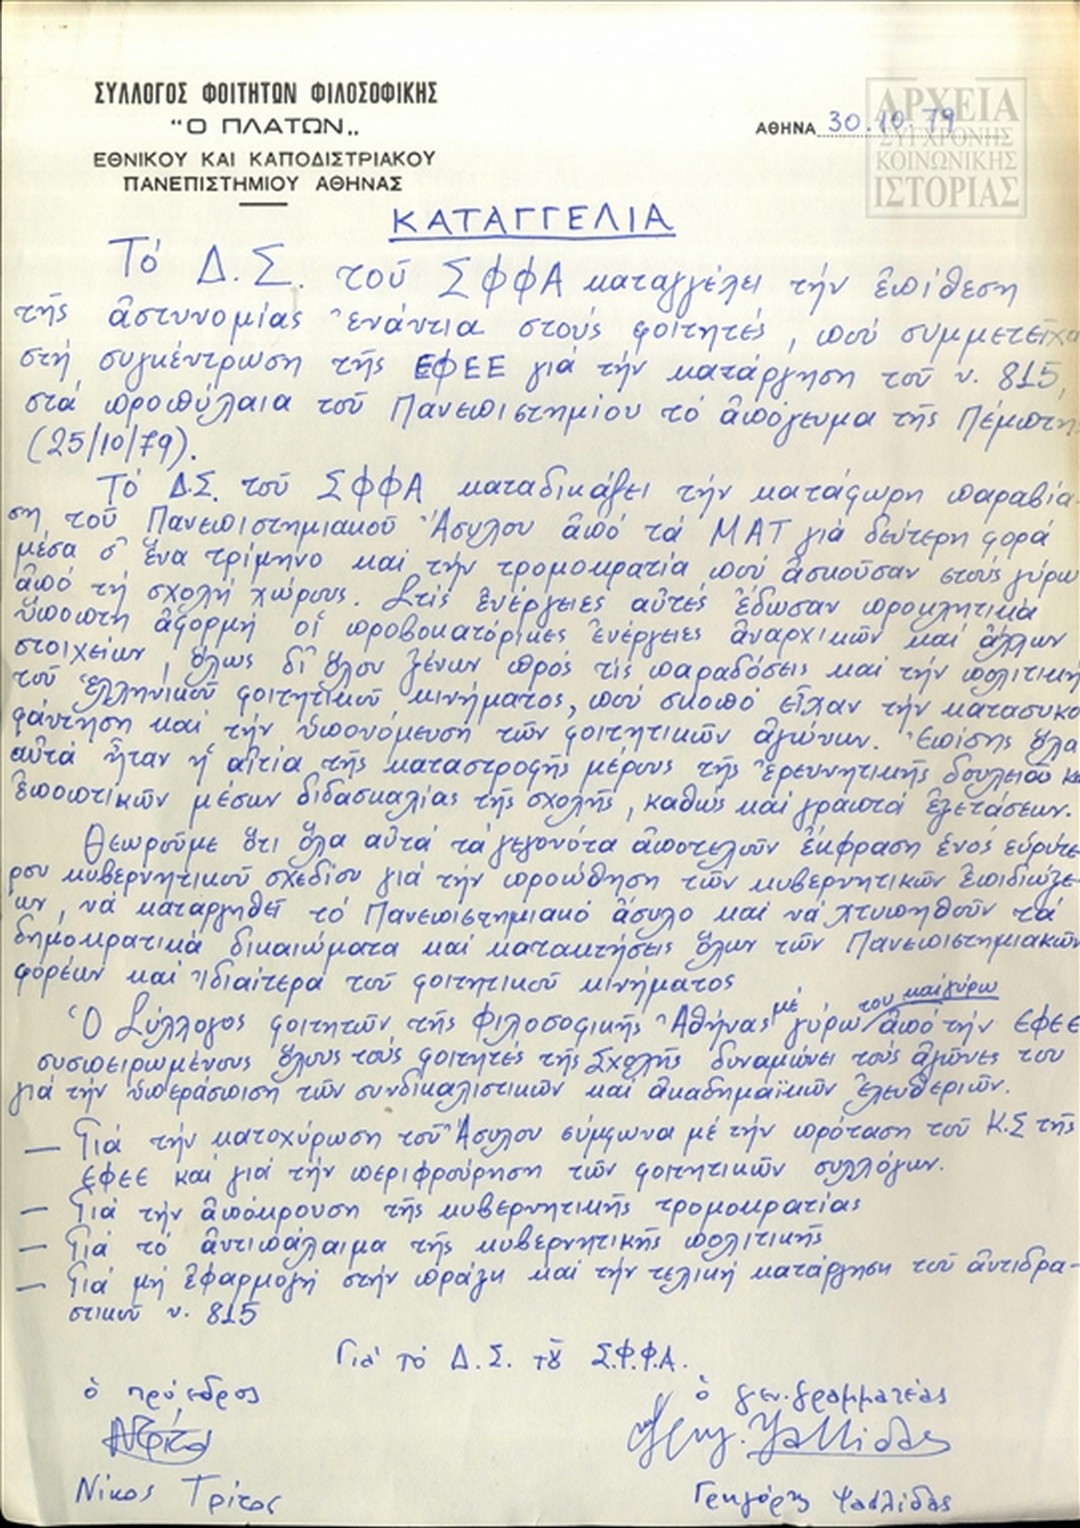 ΣΥΛΛΟΓΟΣ ΦΟΙΤΗΤΩΝ ΦΙΛΟΣΟΦΙΚΗΣ
"Ο ΠΛΑΤΩΝ"
ΕΘΝΙΚΟΥ ΚΑΙ ΚΑΠΟΔΙΣΤΡΙΑΚΟΥ
ΠΑΝΕΠΙΣΤΗΜΙΟΥ ΑΘΗΝΑΣ
ΑΘΗΝΑ 30.10.79
ΑΡΧΕΙΑ
ΣΥΓΧΡΟΝΗΣ
ΚΟΙΝΩΝΙΚΗΣ
ΙΣΤΟΡΙΑΣ
ΚΑΤΑΓΓΕΛΙΑ
Τό Δ.Σ. τοῦ ΣΦΦΑ καταγγέλει τήν ἐπίθεση
τῆς ἀστυνομίας ἐνάντια στούς φοιτητές, πού συμμετεῖχα
στή συγκέντρωση τῆς ΕΦΕΕ γιά τήν κατάργηση τοῦ ν. 815,
στά προπύλαια τοῦ Πανεπιστημίου τό ἀπόγευμα τῆς Πέμπτη
(25/10/79).
Τό Δ.Σ. τοῦ ΣΦΦΑ καταδικάζει τήν κατάφωρη παραβία
ση τοῦ Πανεπιστημιακοῦ Ἀσύλου ἀπό τά ΜΑΤ γιά δεύτερη φορά
μέσα σ' ἕνα τρίμηνο καί τήν τρομοκρατία πού ἀσκοῦσαν στούς γύρω
ἀπό τή σχολή χώρους. Στίς ἐνέργειες αὐτές ἔδωσαν προκλητικά
ὕποπτη ἀφορμή οἱ προβοκατόρικες ἐνέργειες ἀναρχικῶν καί ἄλλων
στοιχείων, ὅλως δι' ὅλου ξένων πρός τίς παραδόσεις καί τήν πολιτική
τοῦ ἑλληνικοῦ φοιτητικοῦ κινήματος, πού σκοπό εἶχαν τήν κατασυκο
φάντηση καί τήν ὑπονόμευση τῶν φοιτητικῶν ἀγώνων. Ἐπίσης ὅλα
αὐτά ἦταν ἡ αἰτία τῆς καταστροφῆς μέρους τῆς ἐρευνητικῆς δουλειᾶς κ
ἐποπτικῶν μέσων διδασκαλίας τῆς σχολῆς, καθώς καί γραπτά ἐξετάσεων.
Θεωροῦμε ὅτι ὅλα αὐτά τά γεγονότα ἀποτελοῦν ἔκφραση ἑνός εὐρύτε
ρου κυβερνητικοῦ σχεδίου γιά τήν προώθηση τῶν κυβερνητικῶν ἐπιδιώξε-
ων, νά καταργηθεῖ τό Πανεπιστημιακό ἄσυλο καί νά χτυπηθοῦν τά
δημοκρατικά δικαιώματα καί κατακτήσεις ὅλων τῶν Πανεπιστημιακῶν
φορέων καί ἰδιαίτερα τοῦ φοιτητικοῦ κινήματος
Ὁ Σύλλογος φοιτητῶν τῆς Φιλοσοφικῆς Ἀθήνας μέ γύρω του καί γύρω ἀπό τήν ΕΦΕΕ
συσπειρωμένους ὅλους τούς φοιτητές τῆς Σχολῆς δυναμώνει τούς ἀγῶνες του
γιά τήν ὑπεράσπιση τῶν συνδικαλιστικῶν καί ἀκαδημαϊκῶν ἐλευθεριῶν.
— Γιά τήν κατοχύρωση τοῦ Ἀσύλου σύμφωνα μέ τήν πρόταση τοῦ Κ.Σ τῆς
ΕΦΕΕ καί γιά τήν περιφρούρηση τῶν φοιτητικῶν συλλόγων.
— Γιά τήν ἀπόκρουση τῆς κυβερνητικῆς τρομοκρατίας
— Γιά τό ἀντιπάλαιμα τῆς κυβερνητικῆς πολιτικῆς
— Γιά μή ἐφαρμογή στήν πράξη καί τήν τελική κατάργηση τοῦ ἀντιδρα-
στικοῦ ν. 815
Γιά τό Δ.Σ. τοῦ Σ.Φ.Φ.Α.
ὁ πρόεδρος
ὁ γεν. γραμματέας
Νίκος Τρίτος
Γρηγόρης Ψαλλίδας